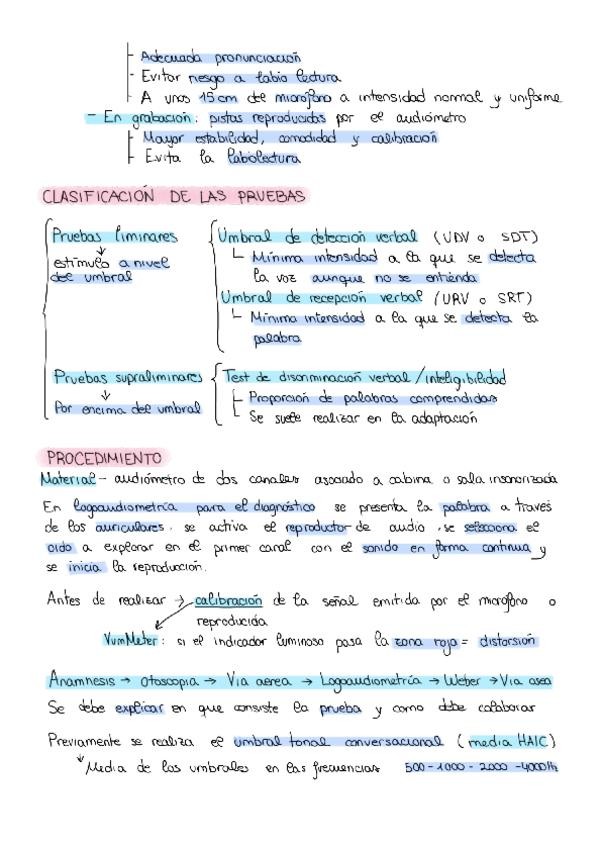 Adecuada pronunciación
- Evitar riesgo a labio lectura
A unos 15 cm del micrófono a intensidad normal y uniforme
- En grabación: pistas reproducidas por el audiómetro
Mayor estabilidad, comodidad y calibración
Evita la labiolectura
CLASIFICACIÓN DE LAS PRUEBAS
Pruebas liminares
↓
estímulo a nivel
del umbral
Umbral de detección verbal (UDV o SDT)
Mínima intensidad a la que se detecta
la voz aunque no se entienda
Umbral de recepción verbal (URV o SRT)
Mínima intensidad a la que se detecta la
palabra
Pruebas supraliminares
↓
Por encima del umbral
Test de discriminación verbal / inteligibilidad
Proporción de palabras comprendidas
Se suele realizar en la adaptación
PROCEDIMIENTO
Material - audiómetro de dos canales asociado a cabina o sala insonorizada
En logoaudiometría para el diagnóstico se presenta la palabra a través
de los auriculares. se activa el reproductor de audio, se selecciona el
oído a explorar en el primer canal con el sonido en forma continua y
se inicia la reproducción.
Antes de realizar → calibración de la señal emitida por el micrófono o
reproducida
VumMeter: si el indicador luminoso pasa la zona roja = distorsión
Anamnesis → otoscopia → Via aerea → Logoaudiometría → Weber → Via osea
Se debe explicar en que consiste la prueba y como debe colaborar
Previamente se realiza el umbral tonal conversacional (media HAIC)
↓ Media de los umbrales en las frecuencias 500 - 1000 - 2000 - 4000 Hz